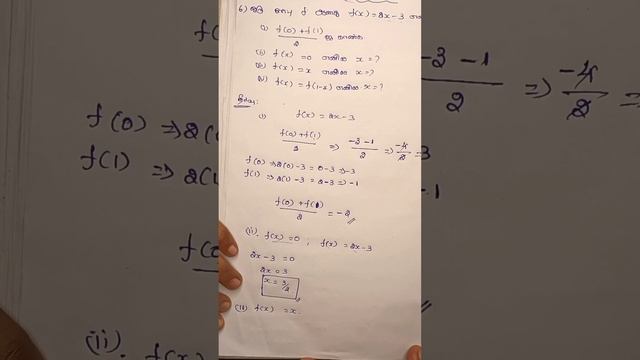 6) ஒரு சார்பு f ஆனது f(x) = 2x - 3
(i) f(0) + f(1) / 2 ஐ காண்க
(ii) f(x) = 0 எனில் x = ?
(iii) f(x) = x எனில் x = ?
(iv) f(x) = f(1-x) எனில் x = ?
தீர்வு:
(i) f(x) = 2x - 3
f(0) + f(1) / 2 ⇒ -3 - 1 / 2 ⇒ -4 / 2
f(0) ⇒ 2(0) - 3 = 0 - 3 ⇒ -3
f(1) ⇒ 2(1) - 3 = 2 - 3 ⇒ -1
f(0) + f(1) / 2 = -2
(ii). f(x) = 0 ; f(x) = 2x - 3
2x - 3 = 0
2x = 3
x = 3/2
(iii) f(x) = x